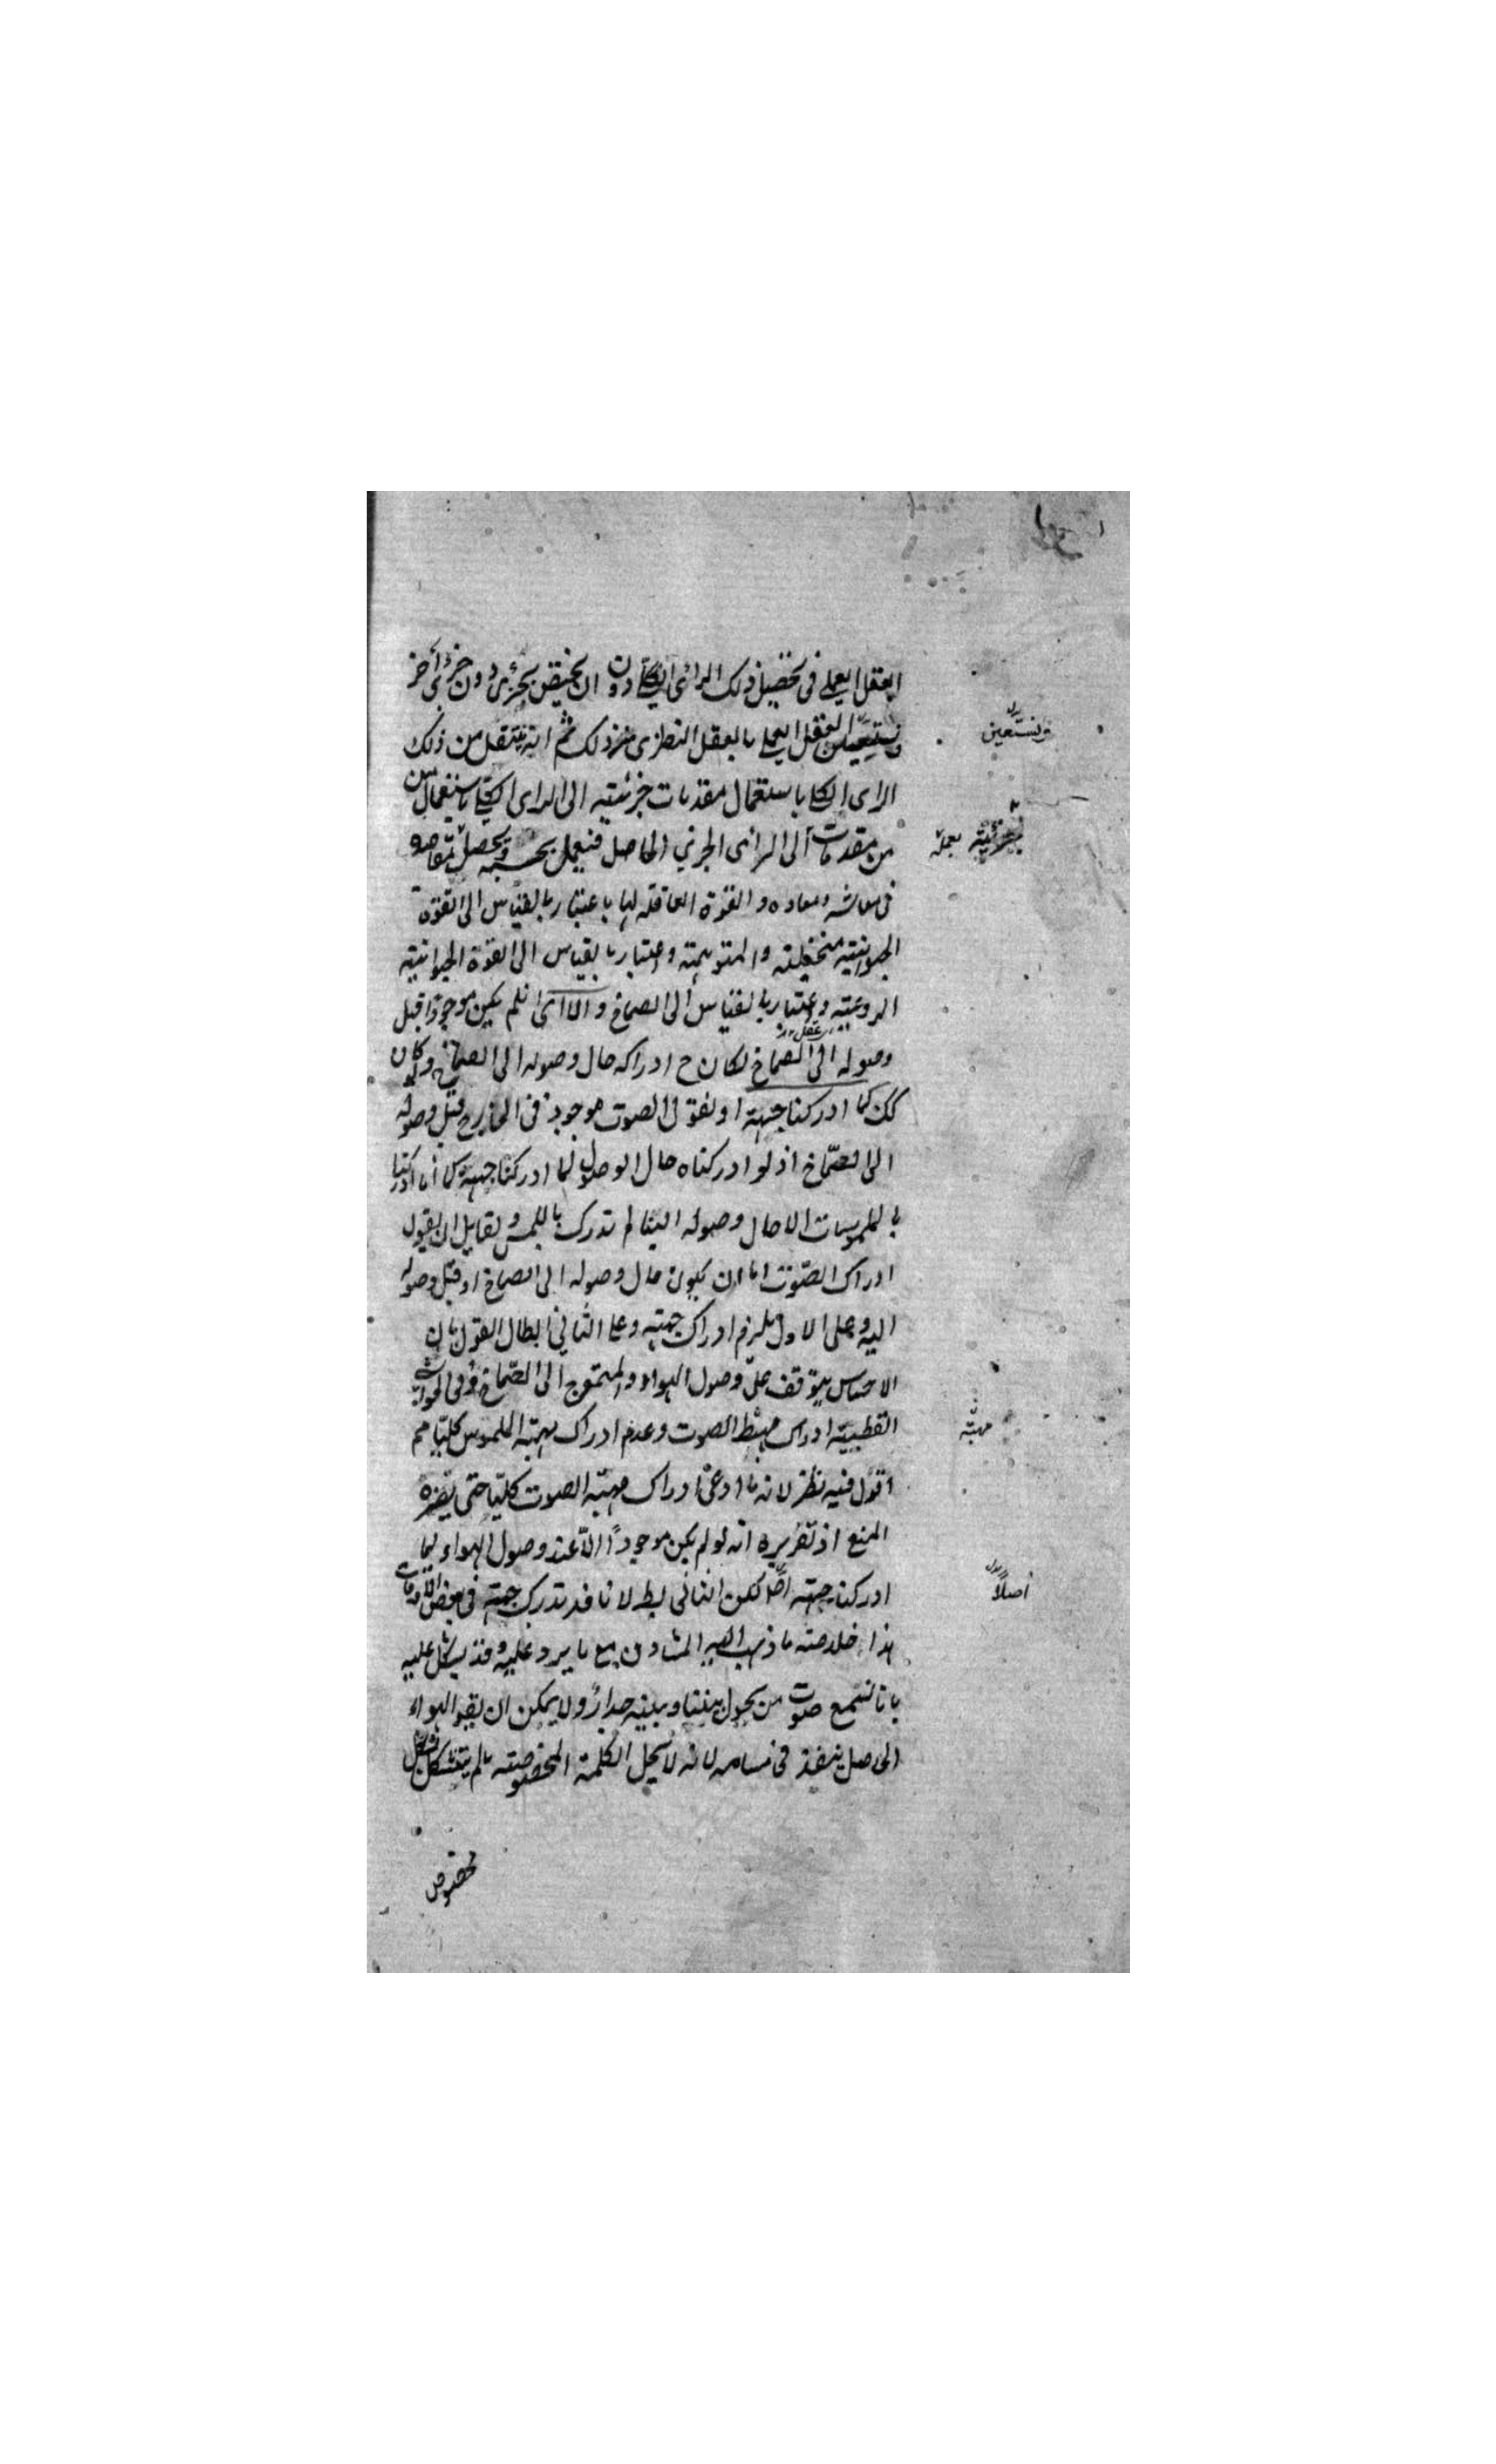 العقل العملي في تحصيل ذلك الرائ الكلي دون ان يختص بجزئي دون جزئي آخر
ونستعين
ويستعين العقل العملي بالعقل النظري في ذلك ثم انه ينتقل من ذلك
الراى الكلي باستعمال مقدمات جزئيته الى الراى الكلي باستعمال من
جزئية بعملة
من مقدمات الى الراى الجزئي الحاصل فيعمل بحسبه ويحصل مقاصده
في معاشه ومعاده و القوة العاقلة لها باعتبارها بالقياس الى القوة
الحيوانيته متخيلته والمتوهمته واعتبارها بقياس الى القوة الحيوانيته
الروعيته واعتبارها بالقياس الى الصماخ و الا اى فلم يكن موجودا قبل
عقل
وصوله الى الصماخ لكان ح ادراكه حال وصوله الى الصماخ ولو كان
كك لما ادركنا جهته اولفق ل الصوت موجود في الخارج قبل وصوله
الى الصّماخ اذ لو ادركناه حال الوصول لما ادركنا جهته كما انا ادركنا
بالملموسات الا حال وصوله الينا لم تدرك باللمس ولقايل ان يقول
ادراك الصّوت اما ان يكون حال وصوله الى الصماخ او قبل وصوله
اليه وعلى الاول يلزم ادراك جهته وعلى الثاني ابطال القول بان
الاحساس يتوقف على وصول الهواء والمتموج الى الصّماخ وفي الحواشي
القطبيته ادراك مهيّة الصوت وعدم ادراك مهيته الملموس كليّا مم
مهيّته
اقول فيه نظر لانه ما ادعى ادراك مهيّة الصوت كليّا حتى يضره
المنع اذ تقريره انه لو لم يكن موجوداً الّا عند وصول الهواء لما
ادركنا جهته اصّلا لكن التالى بط لانا قد ندرك جهته في بعض الاوقات
أصلاً
هذا خلاصته ما ذهب اليه المشاون مع ما يرد عليه وقد يشكل عليه
بانا نسمع صوت من يحول بيننا وبينه جدار ولا يمكن ان يقع الهواء
الحاصل ينفذ في مسامه لانه لا يحمل الكلمة المخصوصته ما لم يتشكل بشكل
مخصوص